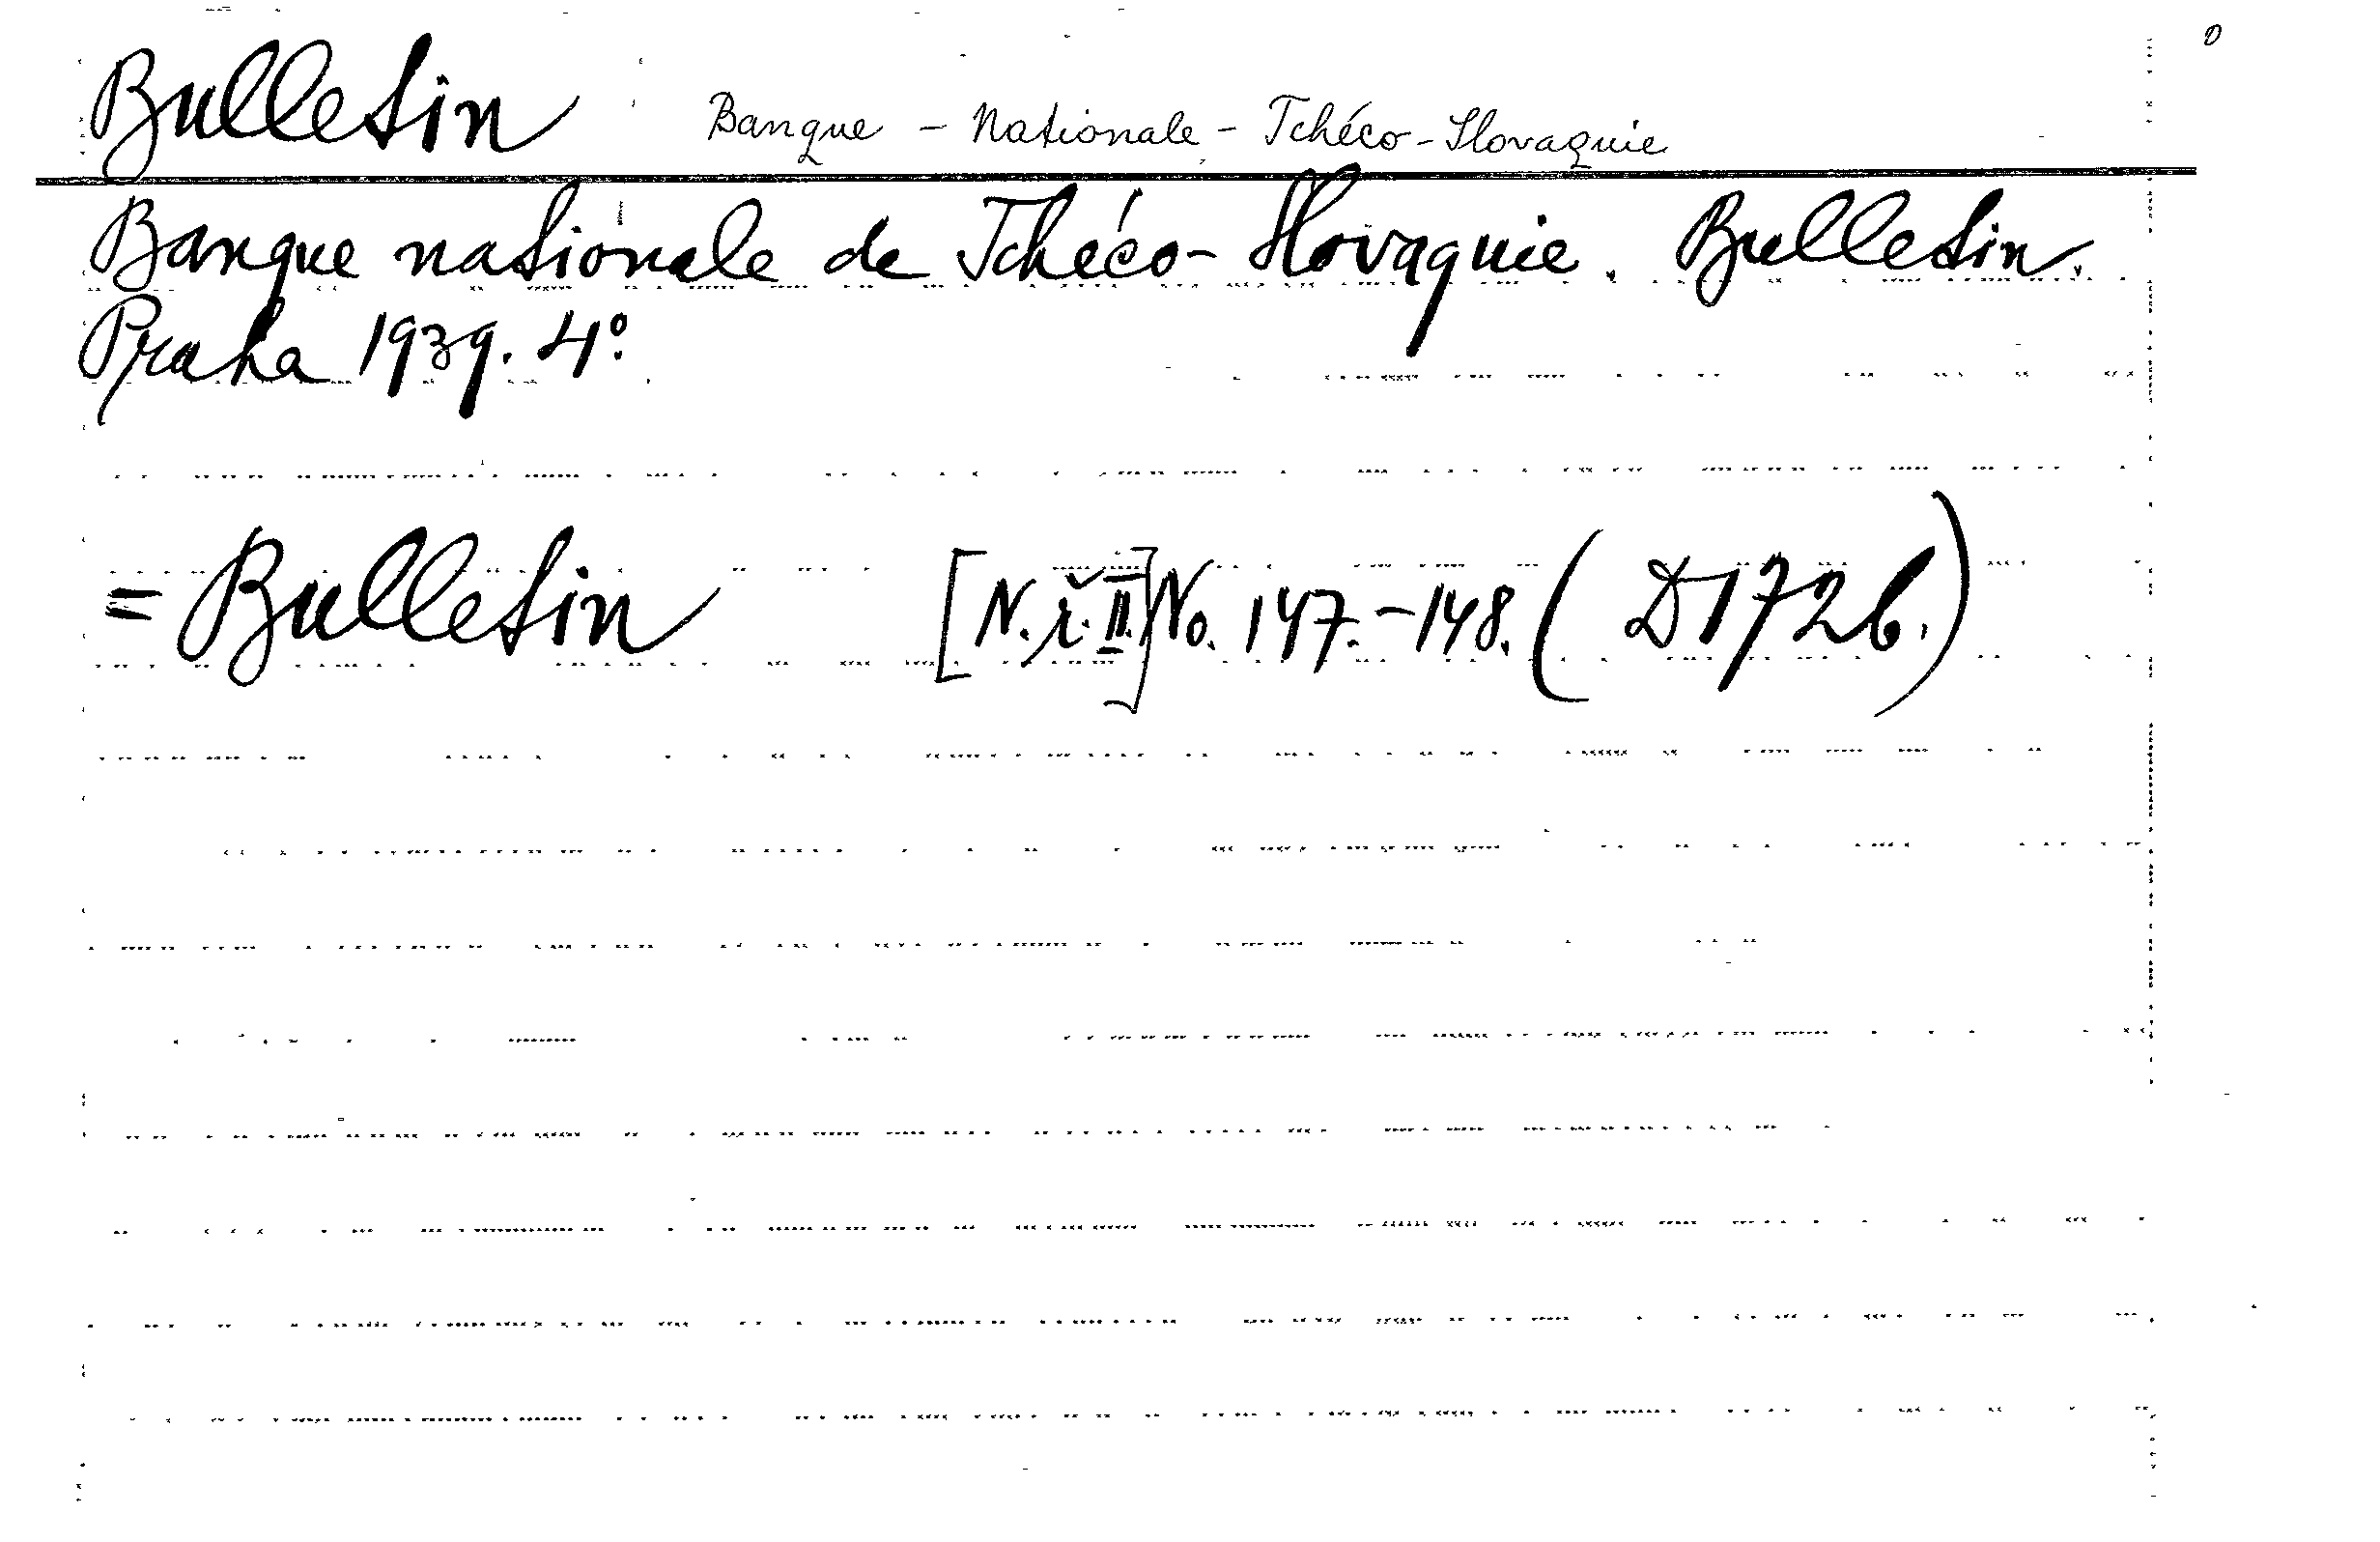 Bulletin Banque - Nationale - Tchéco - Slovaquie
Banque nationale de Tchéco-Slovaquie. Bulletin.
Praha 1939. 4°.
= Bulletin [N.ř.II.] No. 147.-148. (D172b.)